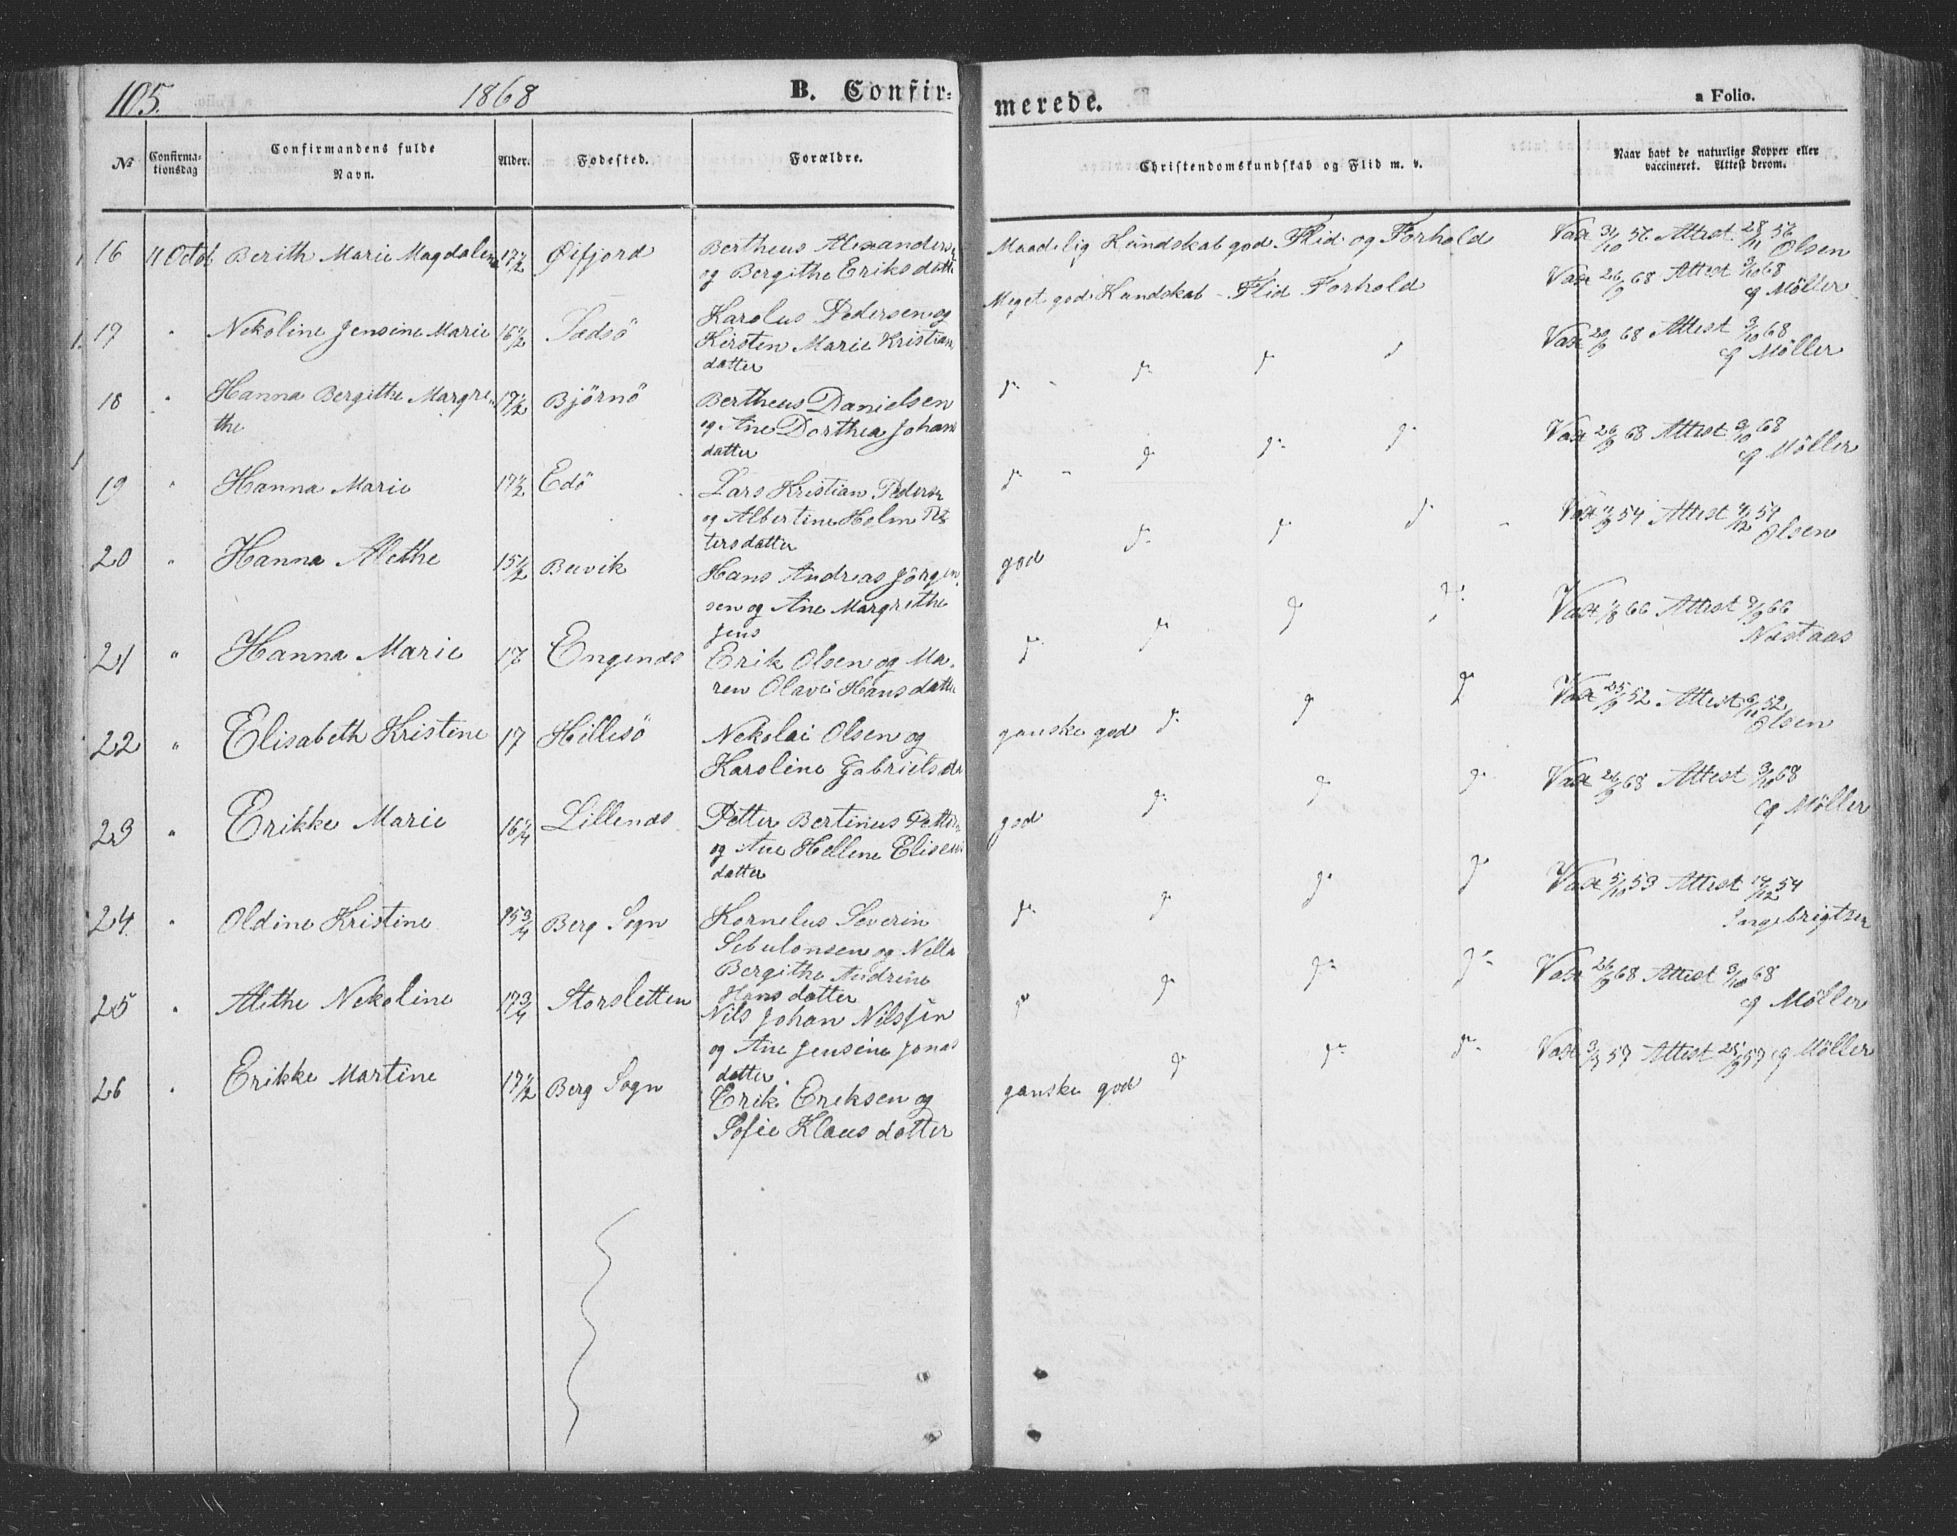 105. 1868 B. Confir-
merede. a Folio.
№ Confirma-tionsdag Confirmandens fulde Navn. Alder. Fødested. Forældre. Christendomskundskab og Flid m. v. Naar havt de naturlige Kopper eller vaccineret. Attest derom.
16 11 Octob Berith Marie Magdalene 17½ Øifjord Bertheus Alexanders
og Bergithe Eriksdatter
Maadelig Kundskab god Flid og Forhold Vac 31/10 56 Attest 28/11 56
Olsen
17 " Nekoline Jensine Marie 16½ Sadsö Karolus Pedersen og
Kirsten Marie Kristian
datter
Meget god Kundskab - Flid Forhold Vac 26/9 68 Attest 3/10 68
Cg Møller
18 " Hanna Bergithe Margre-
the 17½ Björnö Bertheus Danielsen
og Ane Dorthea Johans
datter
Vac 29/9 68 Attest 3/10 68
Cg Møller
19 " Hanna Marie 17½ Edö Lars Kristian Peders
og Albertine Holm Pet
tersdatter
Vac 26/9 68 Attest 3/10 68
Cg Møller
20 " Hanna Alethe 15½ Buvik Hans Andreas Jörgen
sen og Ane Margrethe
Jens
god 54 Attest
Olsen
21 " Hanna Marie 17 Engenäs Erik Olsen og Ma-
ren Olava Hansdatter
66 Attest 66
Næstaas
22 " Elisabeth Kristine 17 Hillesö Nekolai Olsen og
Karoline Gabrielsdr
ganske god Vac 25/9 52 Attest 52
Olsen
23 " Erikke Marie 16¼ Lillenäs Petter Bertinus Petters
og Ane Hellene Eliseus
datter
god Vac 26/9 68 Attest 3/10 68
Cg Møller
24 " Oldine Kristine 15¾ Berg Sogn Kornelus Severin
Sebulonsen og Nella
Bergithe Andrine
Hansdatter
Vac 5/10 53 Attest 14/12 54
Ingebrigtsen
25 " Alethe Nekoline 17¾ Storsletten Nils Johan Nilssen
og Ane Jensine Jonas
datter
Vac 26/9 68 Attest 3/10 68
Cg Møller
26 " Erikke Martine 17½ Berg Sogn Erik Eriksen og
Sofie Klausdatter
ganske god Vac 57 Attest 57 Cg Møller